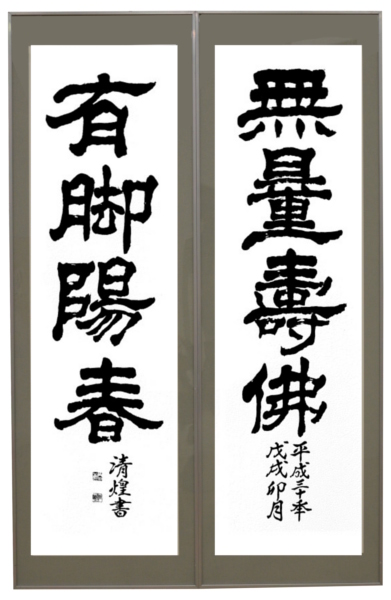 無量壽佛
平成三十年
戊戌卯月
有脚陽春
清煌書